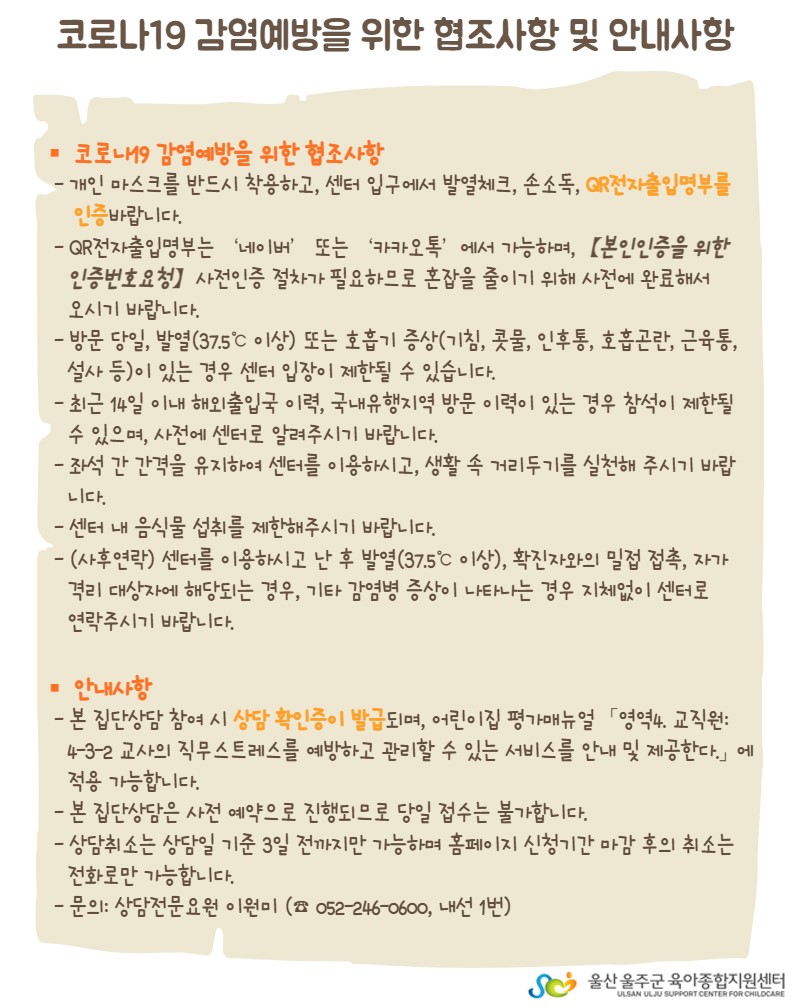 코로나19 감염예방을 위한 협조사항 및 안내사항
▪ 코로나19 감염예방을 위한 협조사항
- 개인 마스크를 반드시 착용하고, 센터 입구에서 발열체크, 손소독, QR전자출입명부를
인증바랍니다.
- QR전자출입명부는 ‘네이버’ 또는 ‘카카오톡’에서 가능하며, 【본인인증을 위한
인증번호요청】 사전인증 절차가 필요하므로 혼잡을 줄이기 위해 사전에 완료해서
오시기 바랍니다.
- 방문 당일, 발열(37.5℃ 이상) 또는 호흡기 증상(기침, 콧물, 인후통, 호흡곤란, 근육통,
설사 등)이 있는 경우 센터 입장이 제한될 수 있습니다.
- 최근 14일 이내 해외출입국 이력, 국내유행지역 방문 이력이 있는 경우 참석이 제한될
수 있으며, 사전에 센터로 알려주시기 바랍니다.
- 좌석 간 간격을 유지하여 센터를 이용하시고, 생활 속 거리두기를 실천해 주시기 바랍
니다.
- 센터 내 음식물 섭취를 제한해주시기 바랍니다.
- (사후연락) 센터를 이용하시고 난 후 발열(37.5℃ 이상), 확진자와의 밀접 접촉, 자가
격리 대상자에 해당되는 경우, 기타 감염병 증상이 나타나는 경우 지체없이 센터로
연락주시기 바랍니다.
▪ 안내사항
- 본 집단상담 참여 시 상담 확인증이 발급되며, 어린이집 평가매뉴얼 「영역4. 교직원:
4-3-2 교사의 직무스트레스를 예방하고 관리할 수 있는 서비스를 안내 및 제공한다.」에
적용 가능합니다.
- 본 집단상담은 사전 예약으로 진행되므로 당일 접수는 불가합니다.
- 상담취소는 상담일 기준 3일 전까지만 가능하며 홈페이지 신청기간 마감 후의 취소는
전화로만 가능합니다.
- 문의: 상담전문요원 이원미 (☎ 052-246-0600, 내선 1번)
울산 울주군 육아종합지원센터
ULSAN ULJU SUPPORT CENTER FOR CHILDCARE